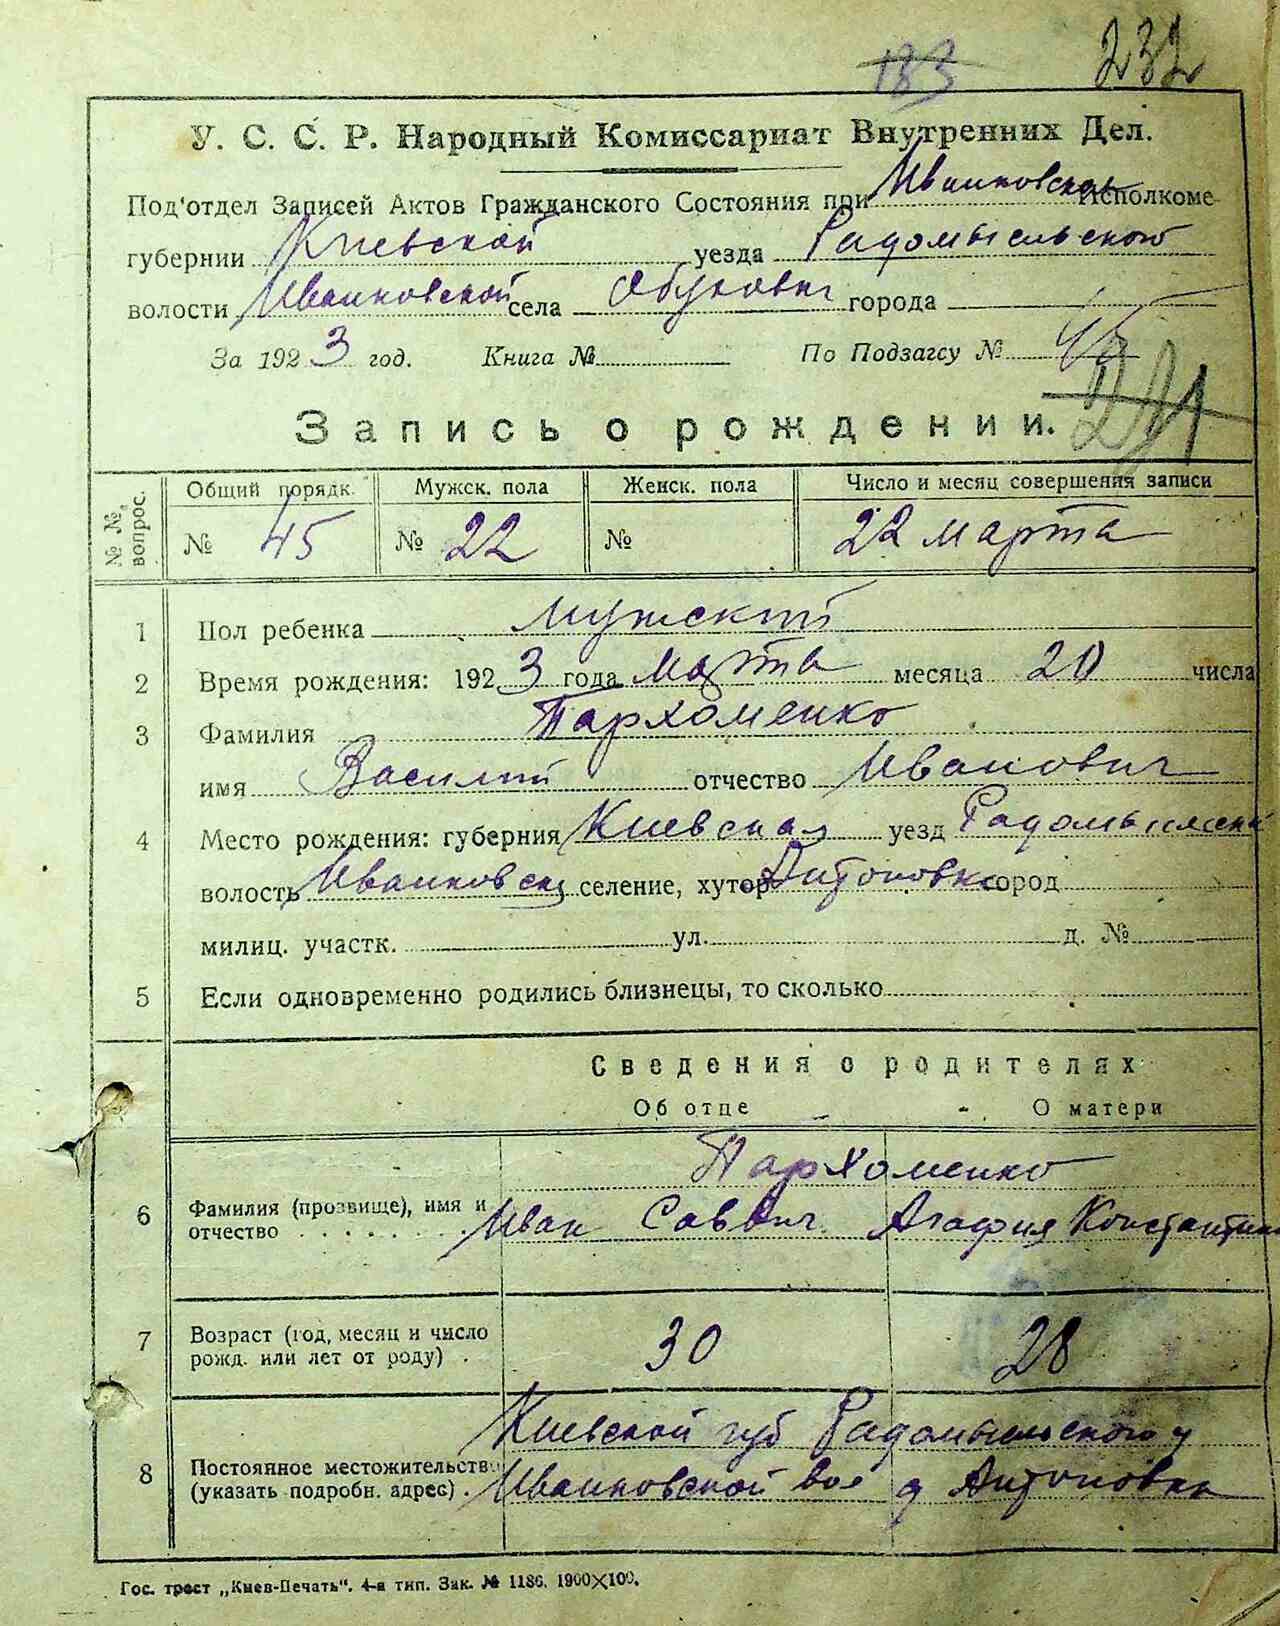 183 232
У. С. С. Р. Народный Комиссариат Внутренних Дел.
Под'отдел Записей Актов Гражданского Состояния при Иванковском Исполкоме
губернии Киевской уезда Радомысельского
волости Иванковской села Обуховичи города
За 1923 год. Книга № По Подзагсу № 45
Запись о рождении.
№ № вопрос. Общий порядк. Мужск. пола Женск. пола Число и месяц совершения записи
№ 45 № 22 № 22 марта
1 Пол ребенка мужской
2 Время рождения: 1923 года марта месяца 20 числа
3 Фамилия Пархоменко
имя Василий отчество Иванович
4 Место рождения: губерния Киевская уезд
волость Иванковская селение, хутор Антоновка город
милиц. участк. ул. д. №
5 Если одновременно родились близнецы, то сколько
Сведения о родителях
Об отце О матери
Пархоменко
6 Фамилия (прозвище), имя и Иван Саввич Агафия
отчество
7 Возраст (год, месяц и число 30 28
рожд. или лет от роду) .
Киевской губ Радомысельского у
8 Постоянное местожительство Иванковской вол д Антоновка
(указать подробн. адрес) .
Гос. трест „Киев-Печать“. 4-я тип. Зак. № 1186. 1900×100.